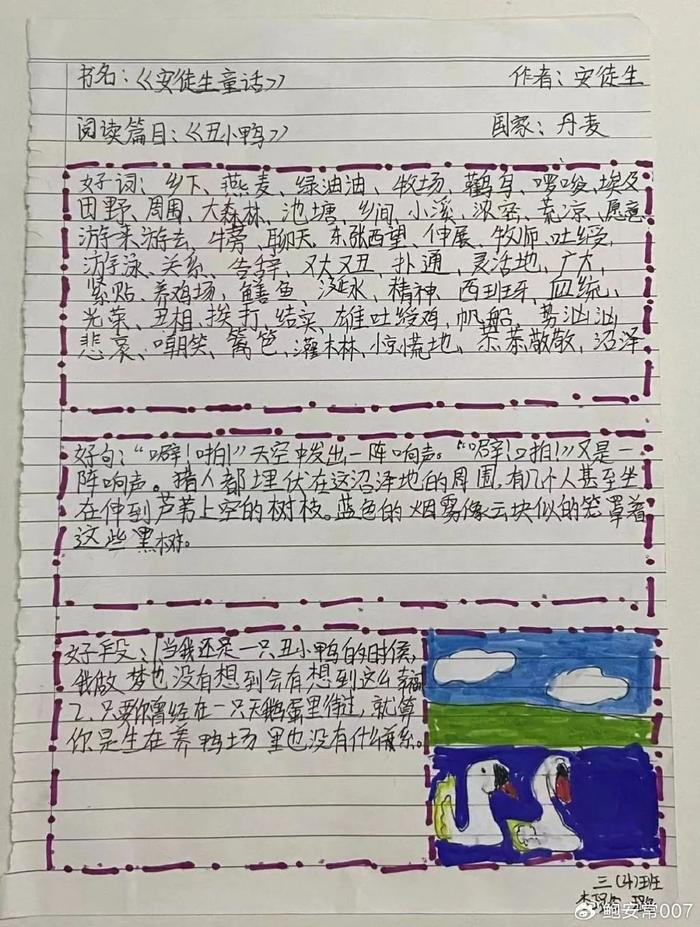 书名：《安徒生童话》 作者：安徒生
阅读篇目：《丑小鸭》 国家：丹麦
好词：乡下、燕麦、绿油油、牧场、鹳鸟、啰唆、埃及
田野、周围、大森林、池塘、乡间、小溪、浓密、荒凉、愿意
游来游去、牛蒡、聊天、东张西望、伸展、牧师、吐绶、
游泳、关系、告辞、又大又丑、扑通、灵活地、广大、
紧贴、养鸡场、鳝鱼、涎水、精神、西班牙、血统、
光荣、丑相、挨打、结实、雄吐绶鸡、帆船、势汹汹
悲哀、嘲笑、篱笆、灌木林、惊慌地、恭恭敬敬、沼泽
好句：“噼！啪！”天空中发出一阵响声。“噼！啪！”又是一
阵响声。猎人都埋伏在这沼泽地的周围，有几个人甚至坐
在伸到芦苇上空的树枝。蓝色的烟雾像云块似的笼罩着
这些黑树。
好段：1当我还是一只丑小鸭的时候，
我做梦也没有想到会有想到这么幸福
2、只要你曾经在一只天鹅蛋里待过，就算
你是生在养鸭场里也没有什么关系。
三（4）班
鲍安常007